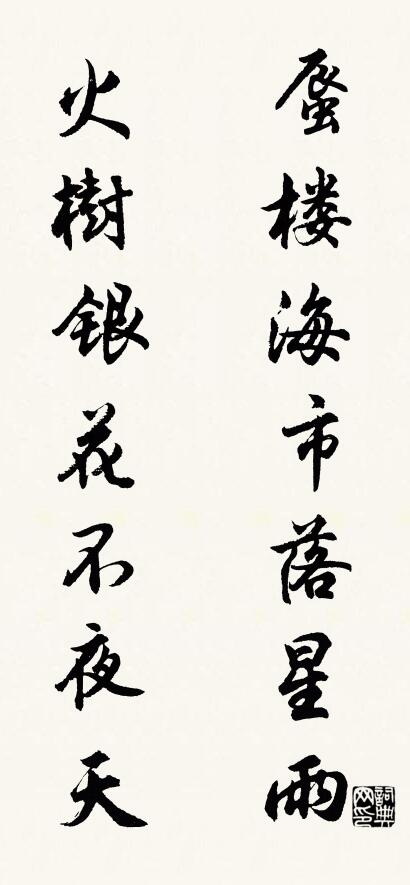 蜃楼海市落星雨
火樹銀花不夜天
詞典网印